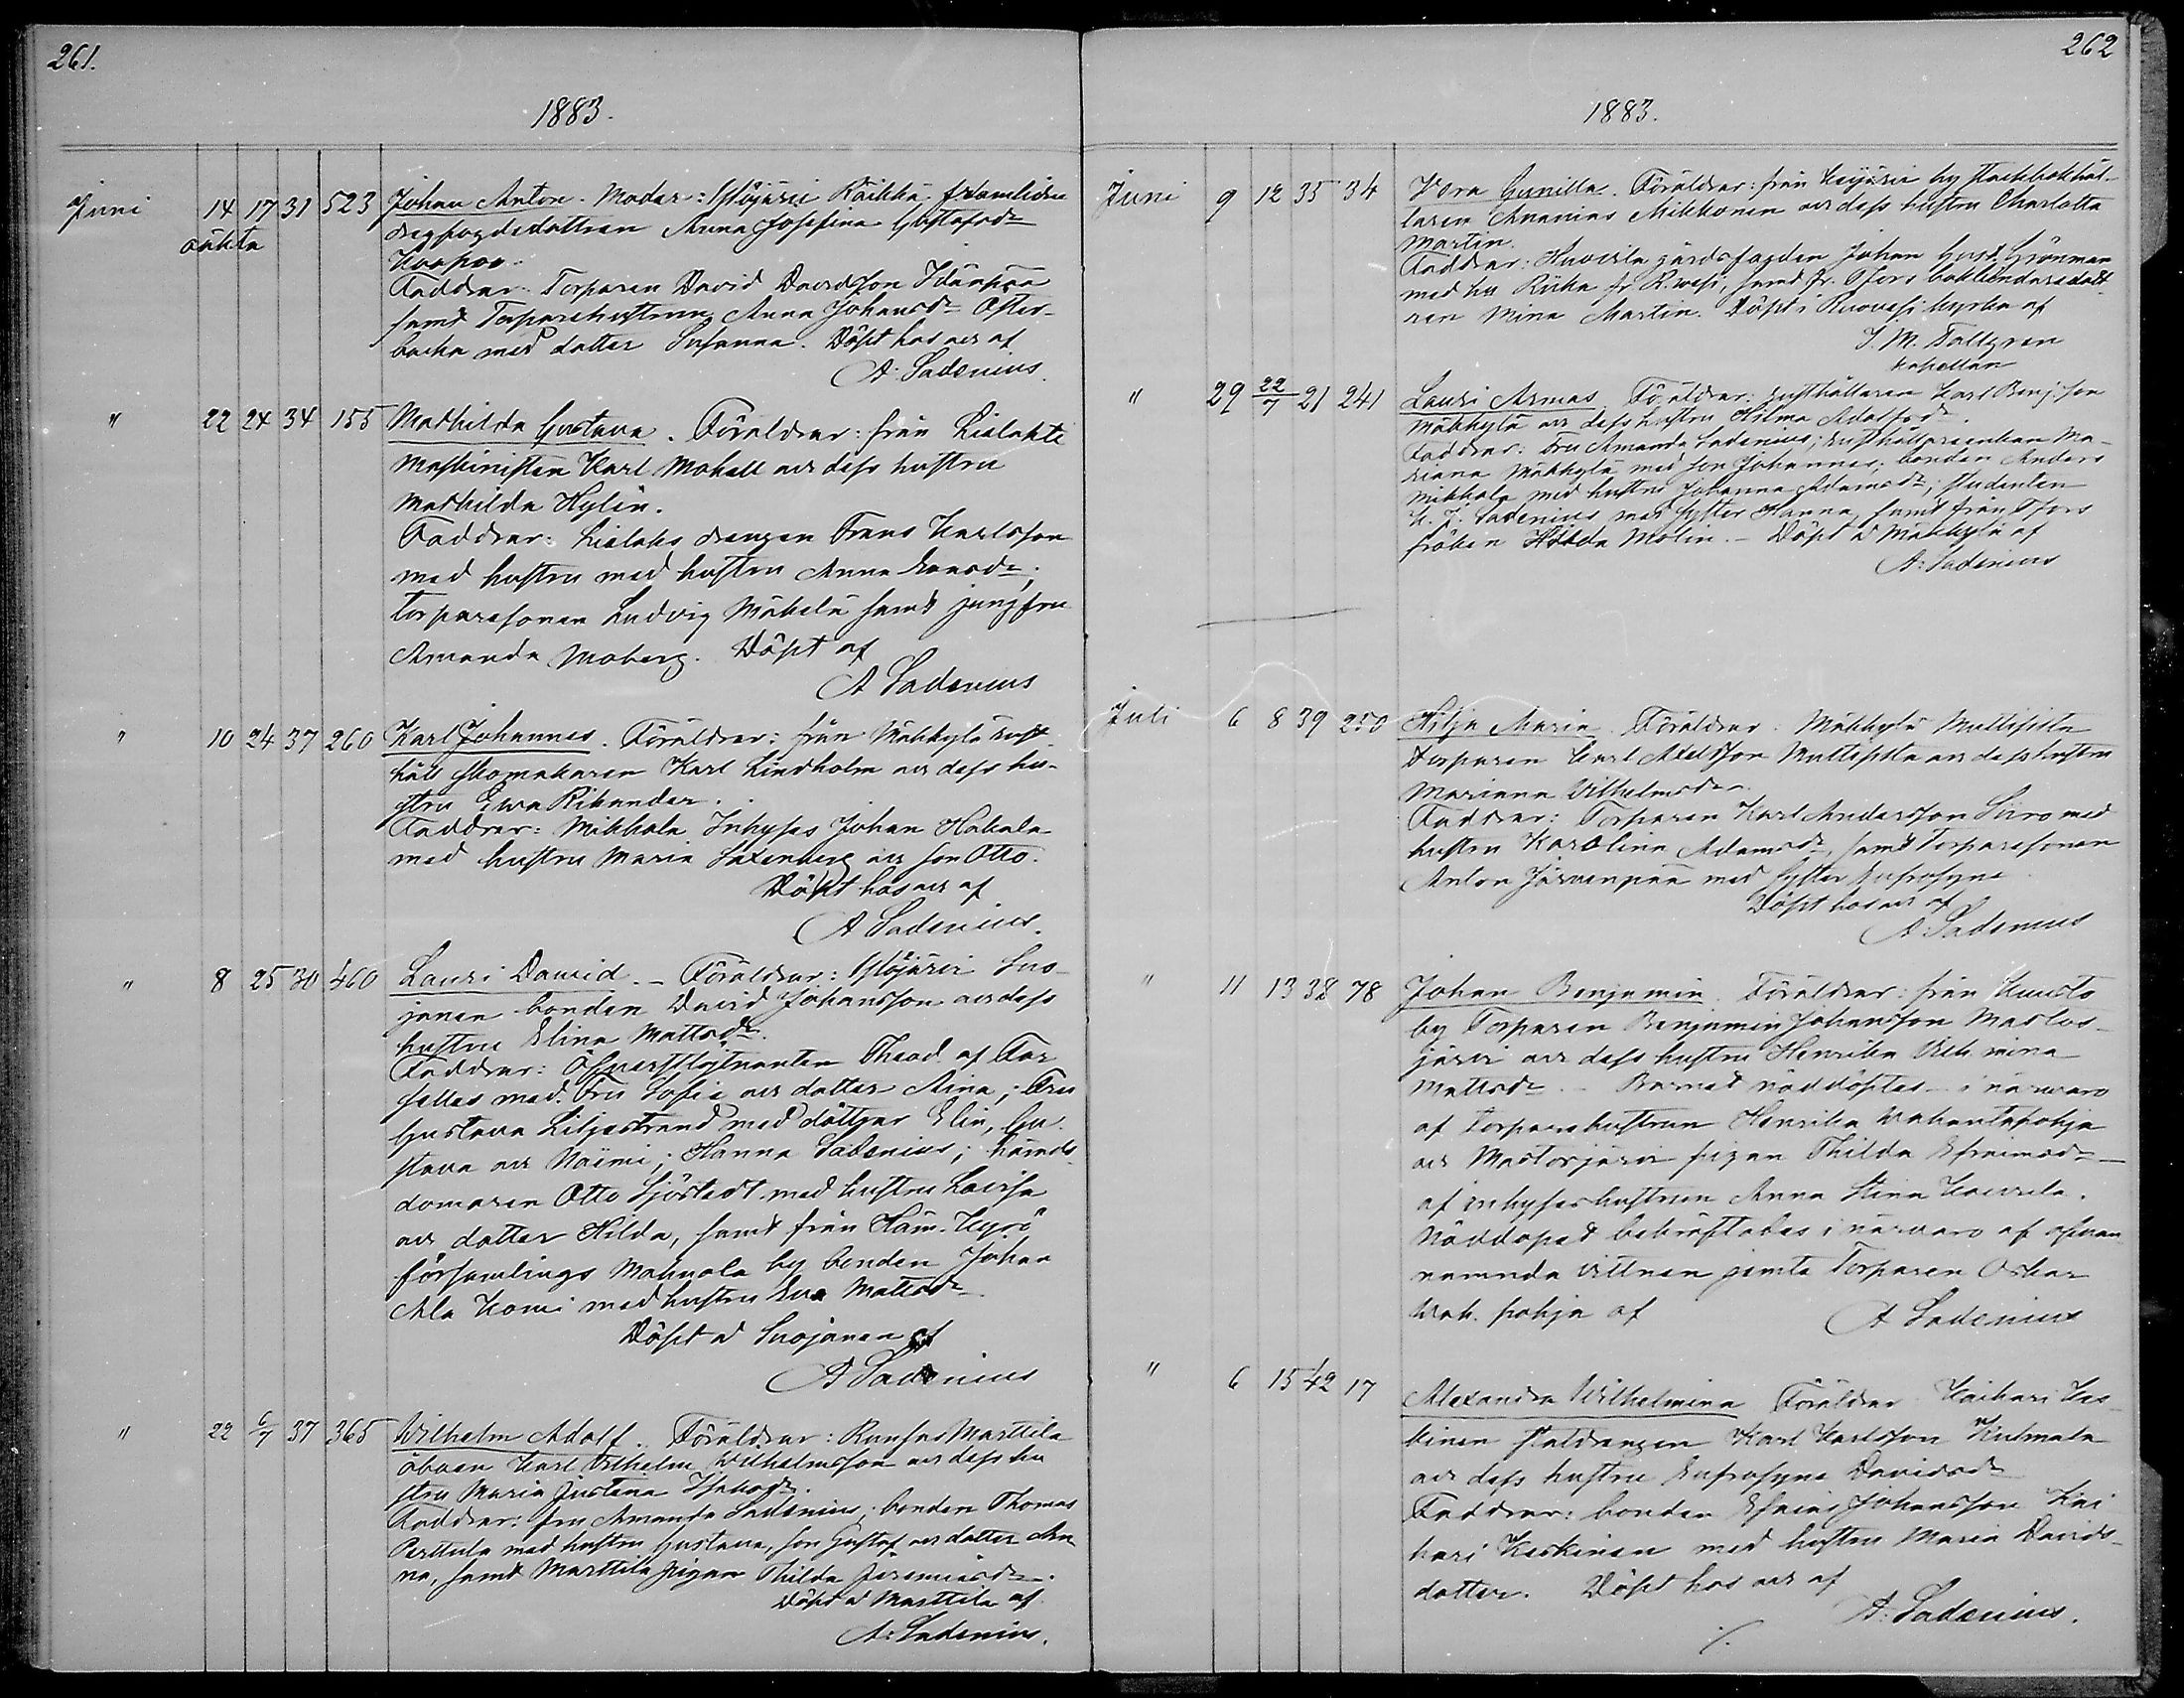 261.
1883.
Juni 14 17 31 523 Johan Anton. Moder: Ylöjärvi Räikkä framlidne
oäkta dragfogdedottren Anna Josefina Gustafsdr
Faddrar: Torparen David Davidsson Idänpää
samt Torparehustrun Anna Johansdr Öster-
backa med dotter Susanna. Döpt hos oss af
A. Ladenius.
" 22 24 34 155 Mathilda Gustava. Föräldrar: från Lielahti
Maskinisten Karl Mohall och dess hustru
Mathilda Hylin.
Faddrar: Lielaks drengen Frans Karlsson
med hustru med hustru Anna Evasdr;
torparesonen Ludvig Mäkelä samt jungfru
Amanda Moberg. Döpt af
A Ladenius
" 10 24 37 260 Karl Johannes. Föräldrar: från Mäkkylä rust-
håll skomakaren Karl Lindholm och dess hu-
stru Ewa Rikander.
Faddrar: Mikkola Inhyses Johan Hakala
med hustru Maria Saxenberg och son Otto.
Döpt hos oss af
A Ladenius.
" 8 25 30 460 Lauri David. - Föräldrar: Ylöjärvi Suo-
janen bonden David Johansson och dess
hustru Elina Mattsdr.
Faddrar: Öfverstlöjtnanten Theod. af For
selles med Fru Sofie och dotter Aina; Fru
Gustava Liljestrand med döttrar Elin, Gu-
stava och Naimi; Hanna Ladenius; härads-
domaren Otto Sjöstedt med hustru Lovisa
och dotter Hilda, samt från Ham. Kyrö
församlings Mahnala by bonden Johan
Ala Komi med hustru Eva Mattsdr
Döpt å Suojanen af
A Ladenius
" 22 6/7 37 365 Wilhelm Adolf. Föräldrar: Runsas Marttila
åboen Karl Vilhelm Wilhelmsson och dess hu
stru Maria Justina Isaksdr.
Faddrar: fru Amanda Ladenius; bonden Thomas
Perttula med hustru Gustava, son Gustaf och dotter An
na, samt Marttila pigan Thilda Jeremiasdr.
Döpt å Marttila af
A. Ladenius.
262
1883.
Juni 9 12 35 34 Vera Gunilla. Föräldrar: från Keijärvi by stackbokhål-
laren Ananias Mikkonen och dess hustru Charlotta
Martin.
Faddrar: Haveila gårdsfogden Johan Gust. Grönman
med hu Riika fr R.vesi, samt fr. Tfors bokbindaredott
ren Mina Martin. Döpt i Ruovesi kyrka af
J. M. Tallgren
kapellan
" 29 22/7 21 241 Lauri Armas Föräldrar: rusthållaren Karl Benj:son
Mäkkylä och dess hustru Hilma Adolfsdr.
Faddrar: Fru Amanda Ladenius; rusthållareenkan Ma-
riana Mäkkylä med son Johannes; bonden Anders
Mikkola med hustru Johanna Adamsdr; studenten
K. J. Ladenius med syster Hanna, samt från Tfors
fröken Hilda Molin. - Döpt å Mäkkylä af
A: Ladenius
Juli 6 8 39 250 Hilja Maria. Föräldrar: Mäkkylä Mattipila
torparen Karl Axelsson Mattipila och dess hustru
Mariana Vilhelmsdr.
Faddrar: Torparen Karl Andersson Siiro med
hustru Karolina Adamsdr, samt Torparesonen
Anton Järvenpää med syster Eufrosyne
Döpt hos oss af
A. Ladenius
" 11 13 38 78 Johan Benjamin. Föräldrar: från
by Torparen Benjamin Johansson Mastos-
järvi och dess hustru Henrika Vilhelmina
Mattsdr. - Barnet nöddöptes - i närvaro
af torparehustrun Henrika Wahantapohja
och Mastosjärvi pigan Thilda Efraimsdr -
af inhyseshustrun Anna Stina Koivula.
Nöddopet bekräftades i närvaro af ofvan
nämnda vittnen jemte Torparen Oskar
Wah. pohja af
A Ladenius
" 6 15 42 17 Alexandra Wilhelmina Föräldrar Kaihari Kes-
kinen staldrengen Karl Karlsson Kulmala
och dess hustru Eufrosyne Davidsdr
Faddrar: bonden Efraim Johansson Kai
hari Keskinen med hustru Maria Davids-
dotter. Döpt hos oss af
A: Ladenius.